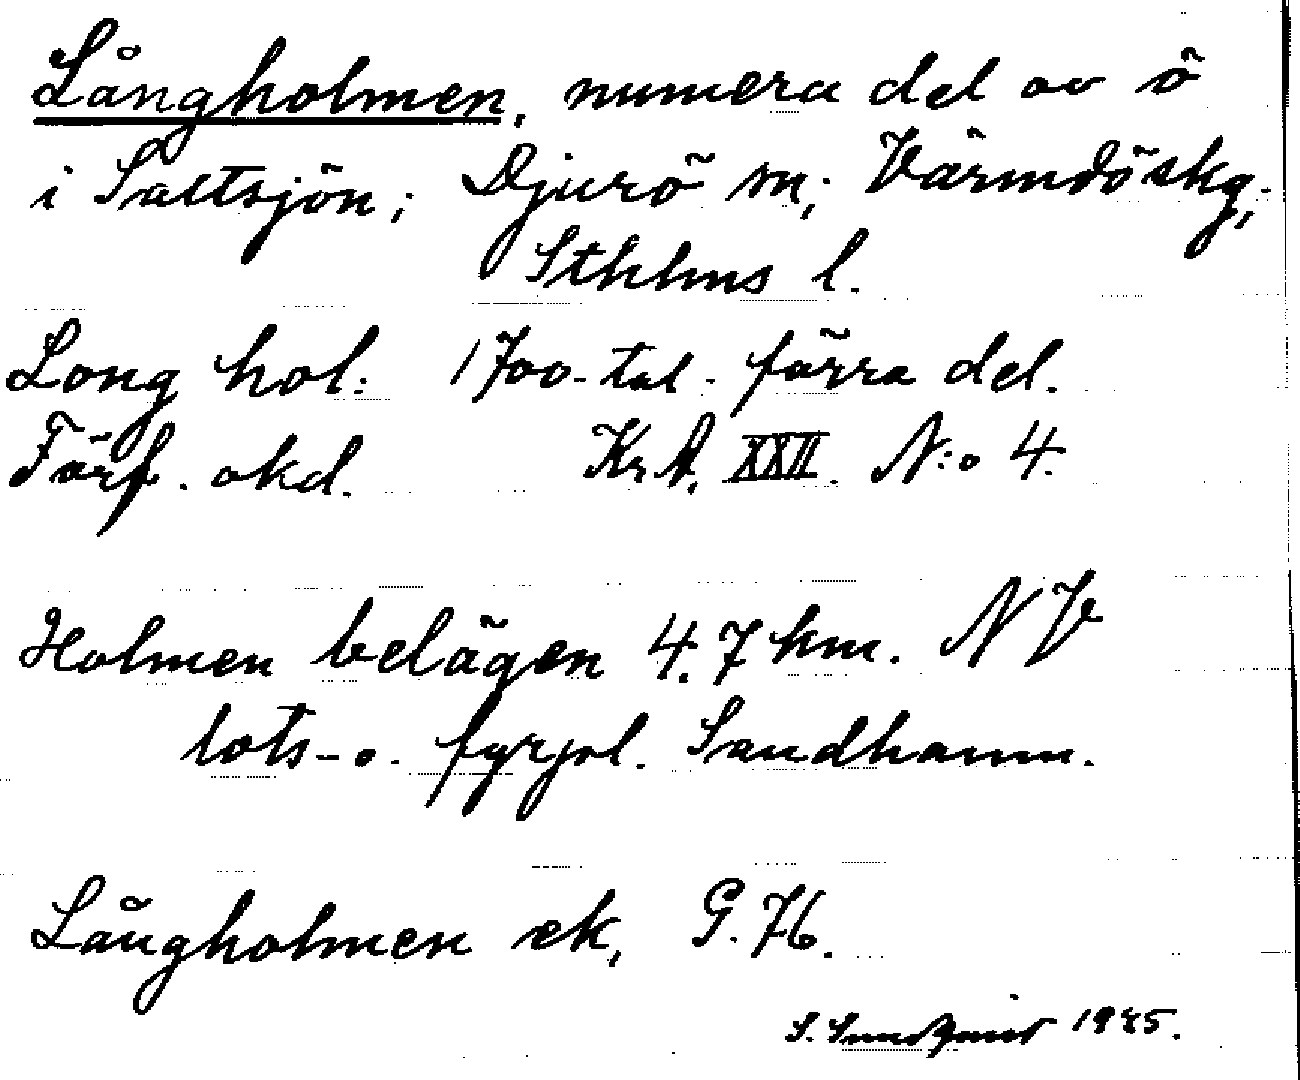 Långholmen, numera del av ö
i Saltsjön; Djurö sn; Värmdö skg,
Sthlms l.
Long hol: 1700-tal. förra del.
Förf. okd. Kr A. XXII. N:o 4.
Holmen belägen 4.7 km. NV
lots- o. fyrpl. Sandhamn.
Långholmen ek, G. 76.
S. Sundqvist 1945.